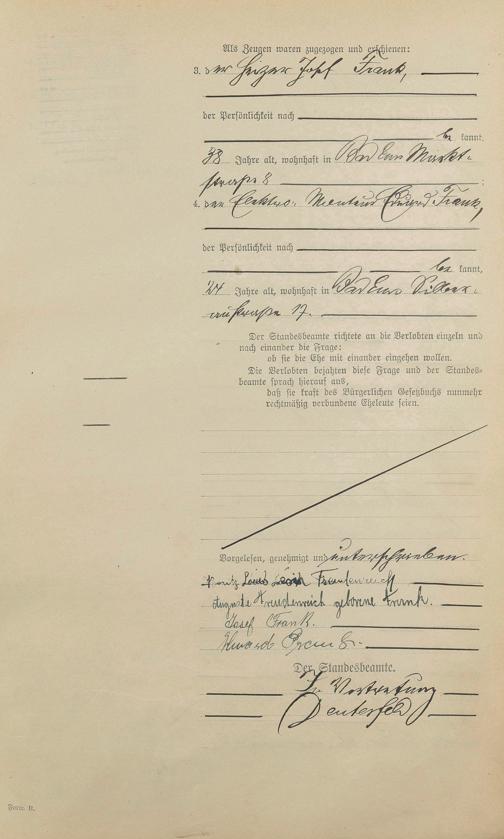 Als Zeugen waren zugezogen und erschienen:
3. der Heizer Josef Frank,
der Persönlichkeit nach
be kannt,
38 Jahre alt, wohnhaft in Bad Ems Markt-
straße 8
4. der Elektro-Monteur Eduard Frank,
der Persönlichkeit nach
be kannt,
24 Jahre alt, wohnhaft in Bad Ems Silber-
austraße 17.
Der Standesbeamte richtete an die Verlobten einzeln und
nach einander die Frage:
ob sie die Ehe mit einander eingehen wollen.
Die Verlobten bejahten diese Frage und der Standes-
beamte sprach hierauf aus,
daß sie kraft des Bürgerlichen Gesetzbuchs nunmehr
rechtmäßig verbundene Eheleute seien.
Vorgelesen, genehmigt und unterschrieben.
Louis
Auguste Freudenreich geborene Frank.
Josef Frank.
Eduard Frank.
Der Standesbeamte.
In Vertretung
Form. B.